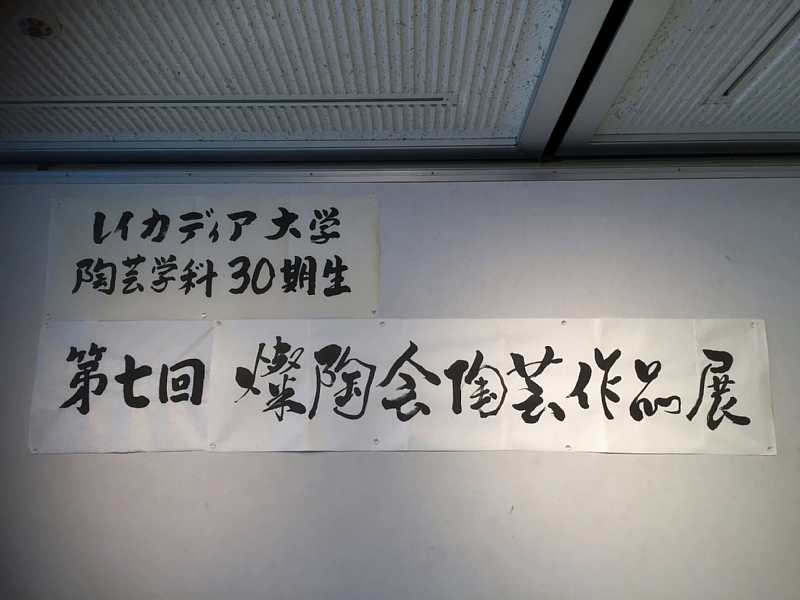 レイカディア大学
陶芸学科30期生
第七回 燦陶会陶芸作品展